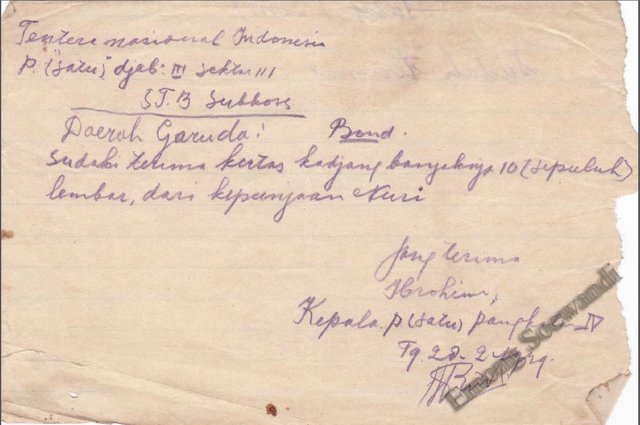 Tentera nasional Indonesia
P. (satu) djab: III Sektor III
ST. B Subkoss
Daerah Garuda! Bond.
Sudah terima kertas kadjang banjaknja 10 (sepuluh)
lembar, dari kepunjaan Nuri
Jang terima
Ibrohim,
Kepala. P (satu) IV
Tg. 28.2.1949.
Soewandi